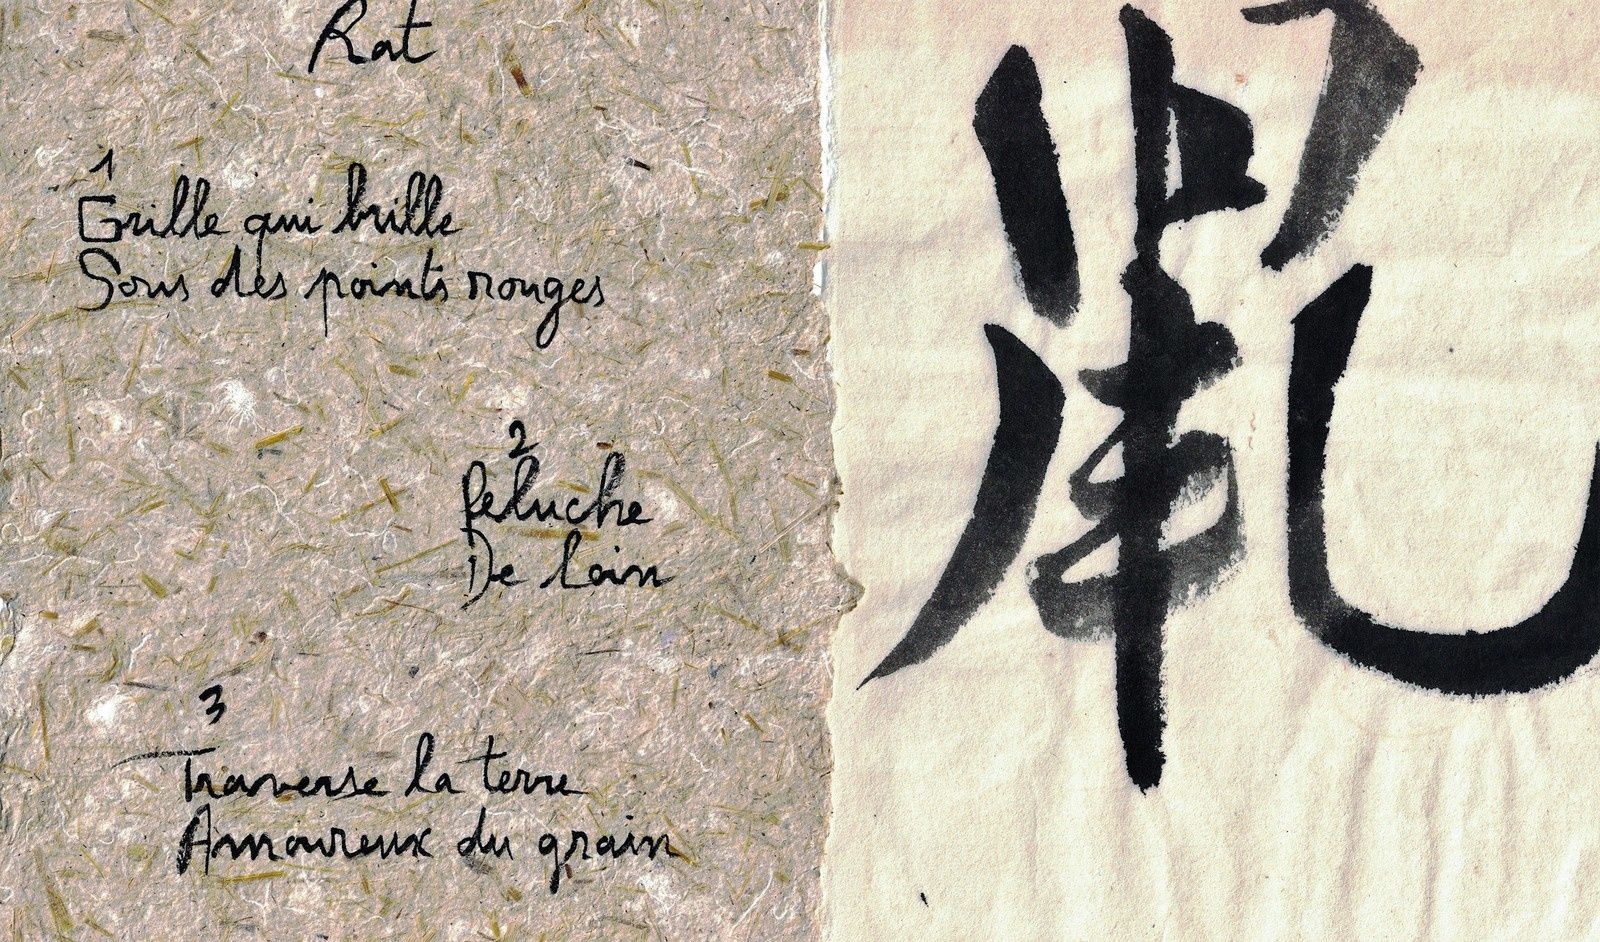 Rat
1
Grille qui brille
Sous des points rouges
2
Peluche
De loin
3
Traverse la terre
Amoureux du grain